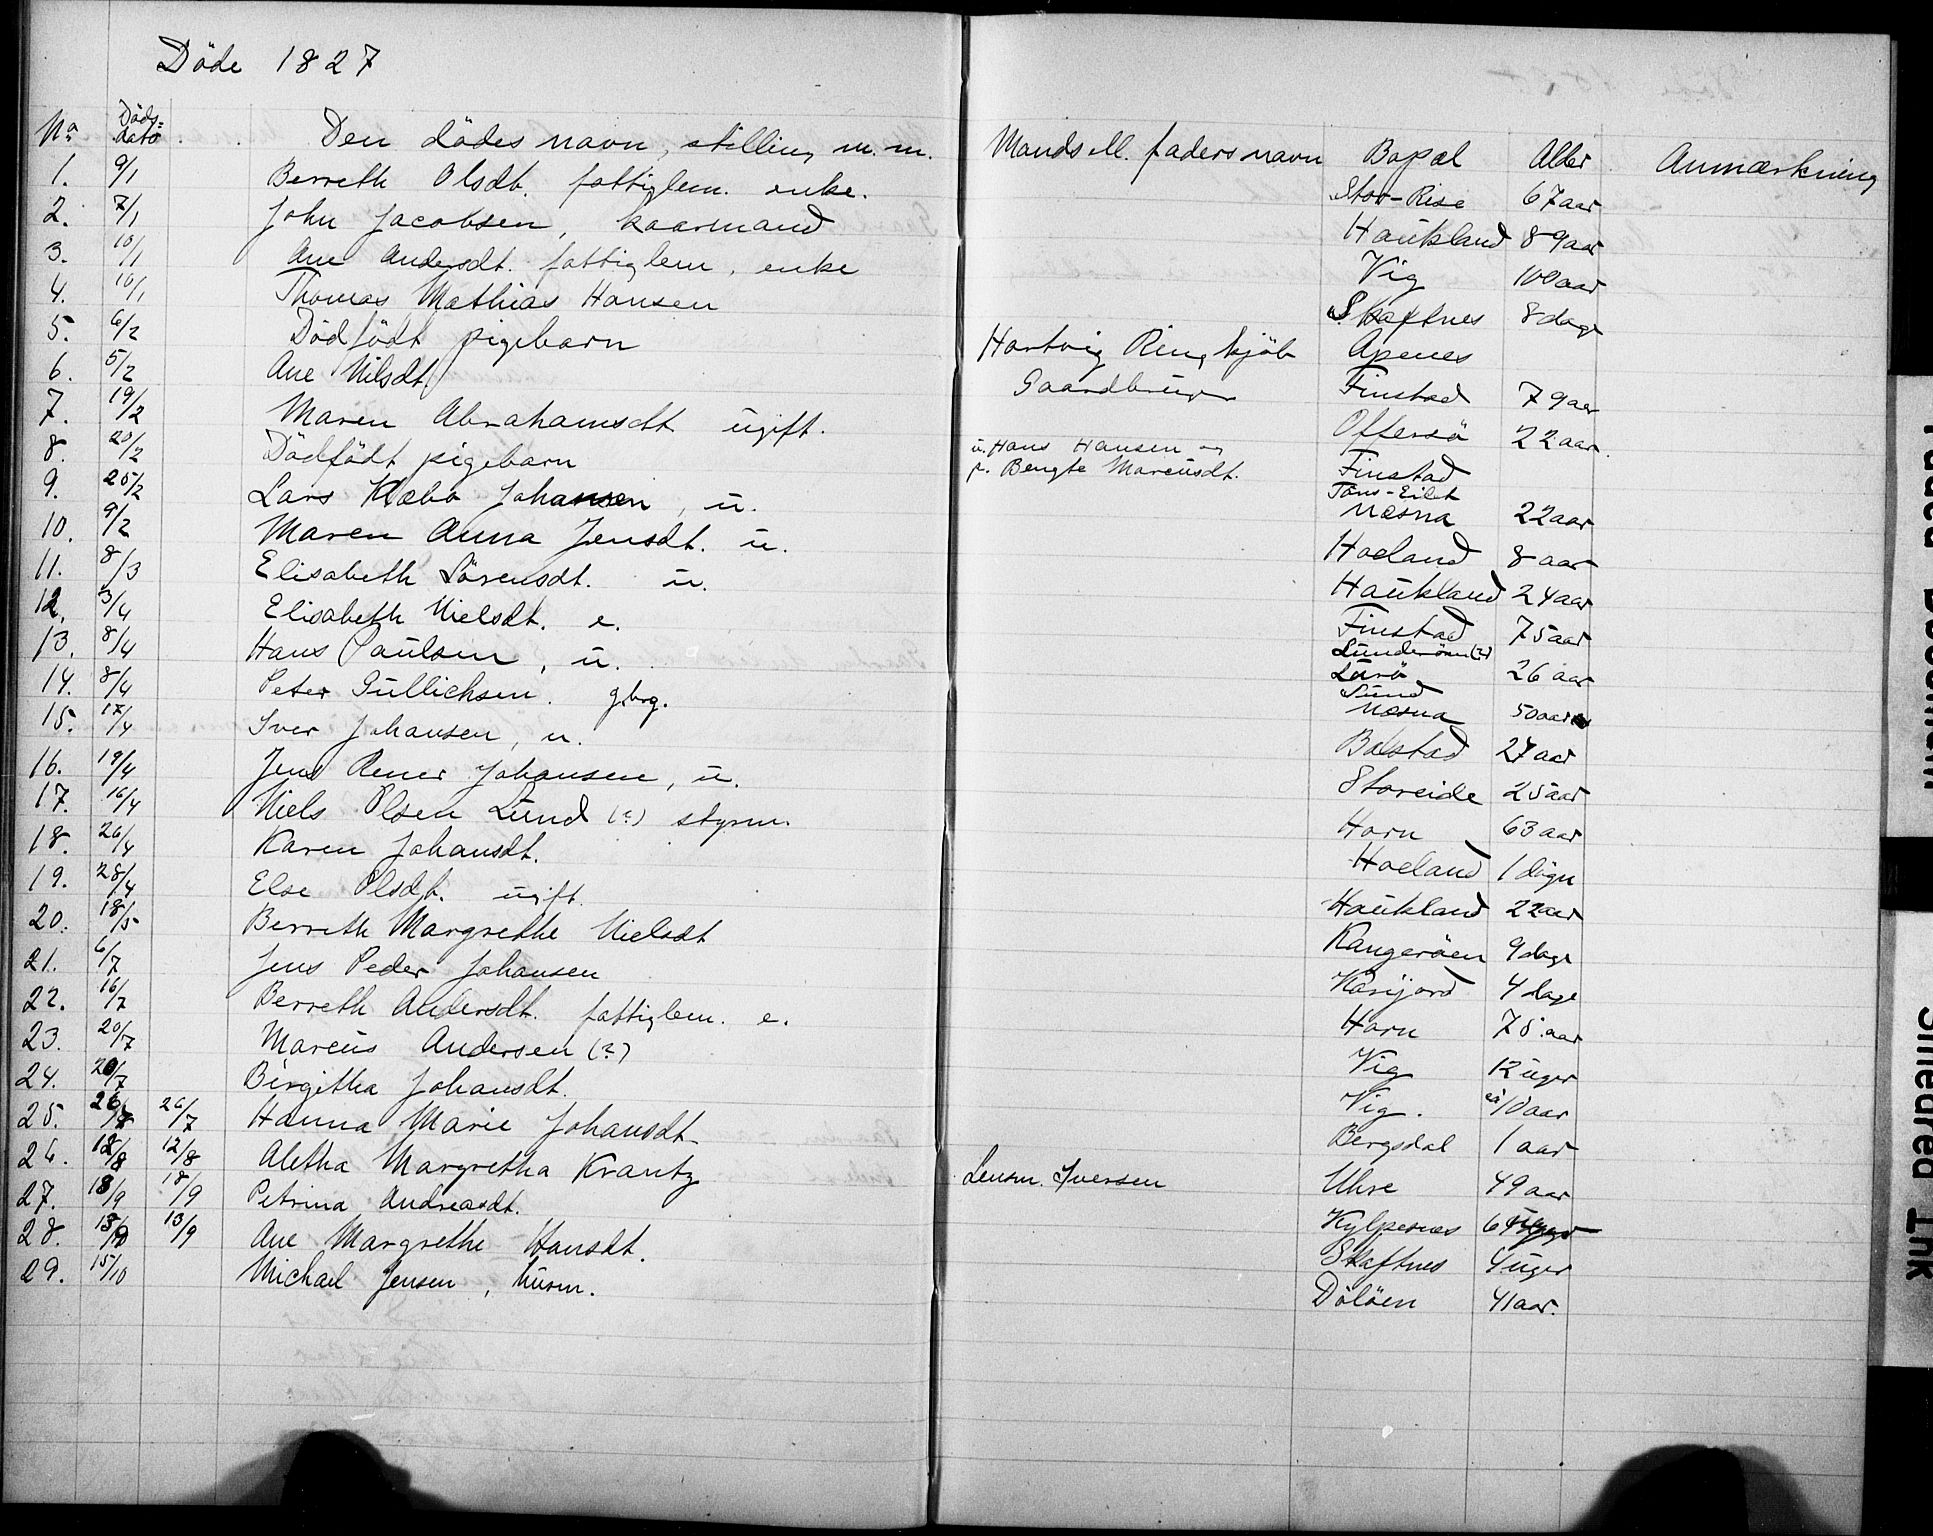 Döde 1827
No Döds-dato Den dödes navn, stilling m.m. Mands ell. faders navn Bopæl Alder Anmærkning
1. 9/1 Berreth Olsdt. fattiglem. enke. Stor-Rise 67 aar
2. 7/1 John Jacobsen, kaarmand Haukland 89 aar
3. 10/1 Ane Andersdt. fattiglem, enke Vig 100 aar
4. 10/1 Thomas Mathias Hansen Skaftnes 8 dage
5. 6/2 Dödfödt pigebarn Hartvig Ringkjöb Apenes
6. 5/2 Ane Nilsdt. Gaardbruger Finstad 79 aar
7. 19/2 Maren Abrahamsdt ugift. Offersö 22 aar.
8. 20/2 Dödfödt pigebarn u. Hans Hansen og p. Bengte Marcusdt. Finstad
9. 25/2 Lars Klæbo Johansen, u. Næsna 22 aar
10. 9/2 Maren Anna Jensdt. u. Hoeland 8 aar
11. 8/3 Elisabeth Sörensdt. u. Haukland 24 aar
12. 3/4 Elisabeth Nielsdt. e. Finstad 75 aar
13. 8/4 Hans Paulsen, u. Lunderöen (?) Lurö 26 aar
14. 8/4 Peter Gullichsen. gbrg. Sund Næsna 50 aar
15. 17/4 Iver Johansen, u. Balstad 27 aar
16. 19/4 Jens Rener Johansen, u. Storeide 25 aar
17. 16/4 Niels Olsen Lund (?) styrm. Horn 63 aar
18. 26/4 Karen Johansdt. Hoeland 1 dögn
19. 28/4 Else Olsdt. ugift. Haukland 22 aar
20. 18/5 Berreth Margrethe Nielsdt Kangeröen 9 dage
21. 6/7 Jens Peder Johansen Karijord 4 dage
22. 16/7 Berreth Andersdt. fattiglem. e. Horn 75 aar
23. 20/7 Marcus Andersen (?) Vig 12 uger
24. 20/7 Birgitha Johansdt. Vig. ca 10 aar
25. 26/7 Hanna Marie Johansdt. Bergsdal 1 aar
26. 12/8 12/8 Aletha Margretha Krantz Lensm. Iversen Uhre 49 aar
27. 18/9 18/9 Petrina Andreasdt. Kylpesnes 6
28. 13/9 Ane Margrethe Hansdt. Skaftnes 4 uger
29. 15/10 Michael Jensen, husm. Dölöen 41 aar.
Faded Document
Smeared Ink